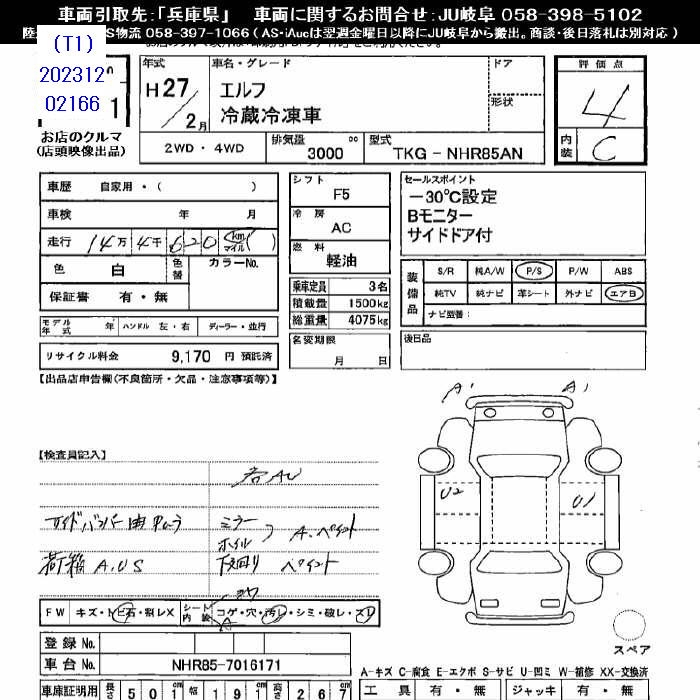 車両引取先:「兵庫県」 車両に関するお問合せ:JU岐阜 058-398-5102
S物流 058-397-1066 ( AS・iAucは翌週金曜日以降にJU岐阜から搬出。商談・後日落札は別対応 )
(T1)
202312
02166
1
お店のクルマ
(店頭映像出品)
年式 車名・グレード ドア 評価点
H27/2月 エルフ 4
冷蔵冷凍車 形状
2WD・4WD 排気量 3000 cc 型式 TKG - NHR85AN 内装 C
車歴 自家用・( )
車検 年 月
走行 14万4千620 km マイル ( )
色 白 色替 カラーNo.
保証書 有・無
モデル年式 年 ハンドル 左・右 ディーラー・並行
リサイクル料金 9,170 円 預託済
シフト F5
冷房 AC
燃料 軽油
乗車定員 3名
積載量 1500kg
総重量 4075kg
名変期限
月 日
セールスポイント
-30℃設定
Bモニター
サイドドア付
装備品 S/R 純A/W P/S P/W ABS
純TV 純ナビ 革シート 外ナビ エアB
ナビ型番:
後日品
【出品店申告欄(不良箇所・欠品・注意事項等)】
【検査員記入】
A' A'
U2 U1
ミラー
ホイル A.ペイント
荷箱 A.US 下回り ペイント
FW キズ・トビ石・割レX シート内装 コゲ・穴・汚レ・シミ・破レ・スレ
A
スペア
登録 No.
車台 No. NHR85-7016171
A-キズ C-腐食 E-エクボ S-サビ U-凹ミ W-補修 XX-交換済
車庫証明用 長さ 501cm 幅 191cm 高さ 267cm
工具 有・無 ジャッキ 有・無